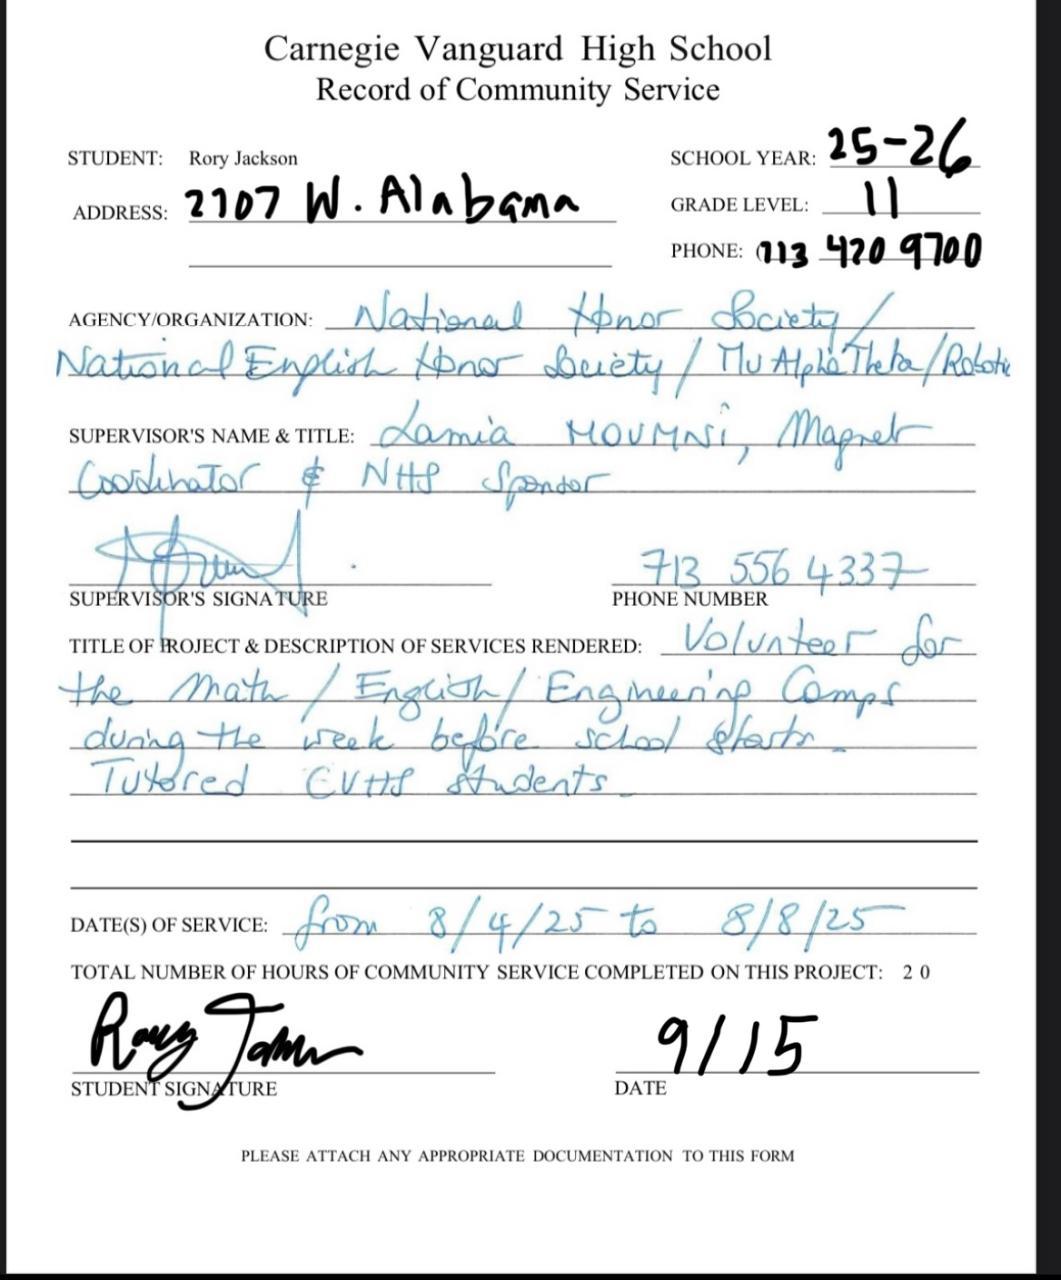 Carnegie Vanguard High School
Record of Community Service
STUDENT: Rory Jackson SCHOOL YEAR: 25-26
ADDRESS: 2107 W. Alabama GRADE LEVEL: 11
PHONE: 713 420 9700
AGENCY/ORGANIZATION: National Honor Society/
National English Honor Society / Mu Alpha Theta/Robotic
SUPERVISOR'S NAME & TITLE: Lamia MOUMNI, Magnet
Coordinator & NHS Sponsor
713 556 4337
SUPERVISOR'S SIGNATURE PHONE NUMBER
TITLE OF PROJECT & DESCRIPTION OF SERVICES RENDERED: Volunteer for
the Math / English / Engineering Camps
during the week before school starts.
Tutored CVHS students.
DATE(S) OF SERVICE: from 8/4/25 to 8/8/25
TOTAL NUMBER OF HOURS OF COMMUNITY SERVICE COMPLETED ON THIS PROJECT: 20
Rory 9/15
STUDENT SIGNATURE DATE
PLEASE ATTACH ANY APPROPRIATE DOCUMENTATION TO THIS FORM